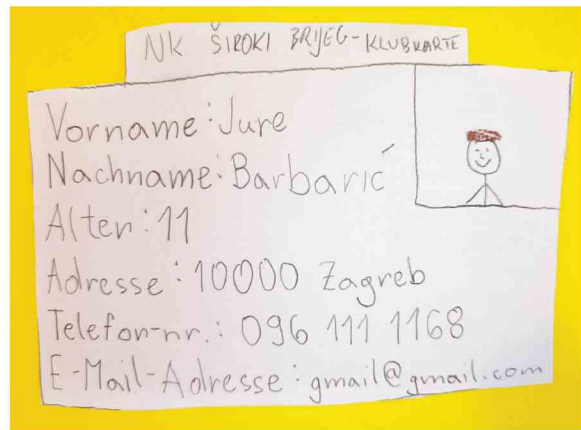 NK ŠIROKI BRIJEG-KLUBKARTE
Vorname: Jure
Nachname: Barbarić
Alter: 11
Adresse: 10000 Zagreb
Telefon-nr.: 096 111 1168
E-Mail-Adresse: gmail@gmail.com